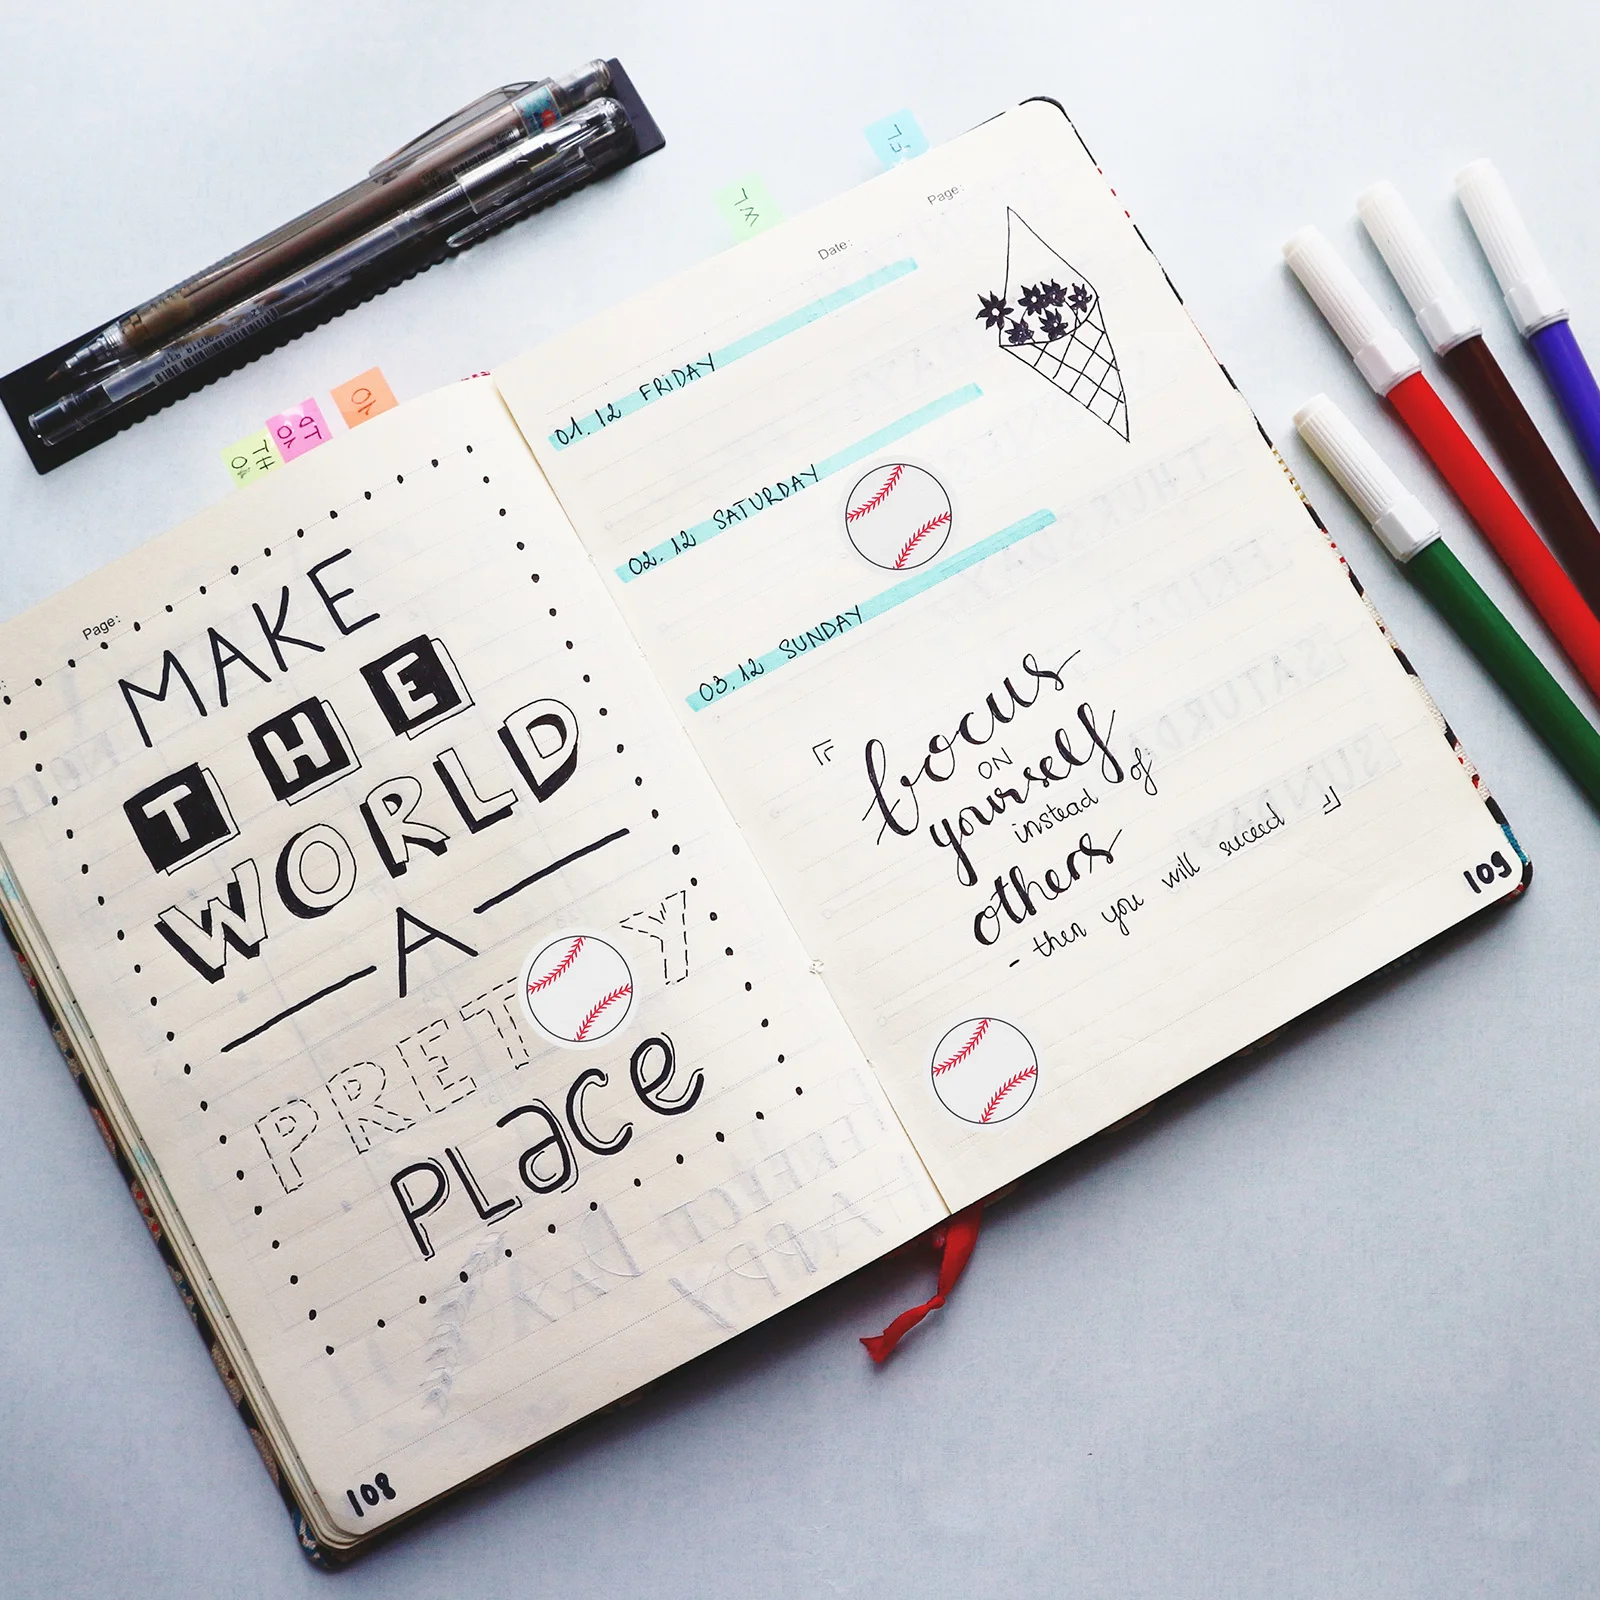 Page:
MAKE
THE
WORLD
A
PRET Y
PLaCe
108
Date:
Page:
01. 12 FRiDAY
02. 12 SATURDAY
03. 12 SUNDAY
focus
ON
yourself
instead of
others
- then you will suceed
109